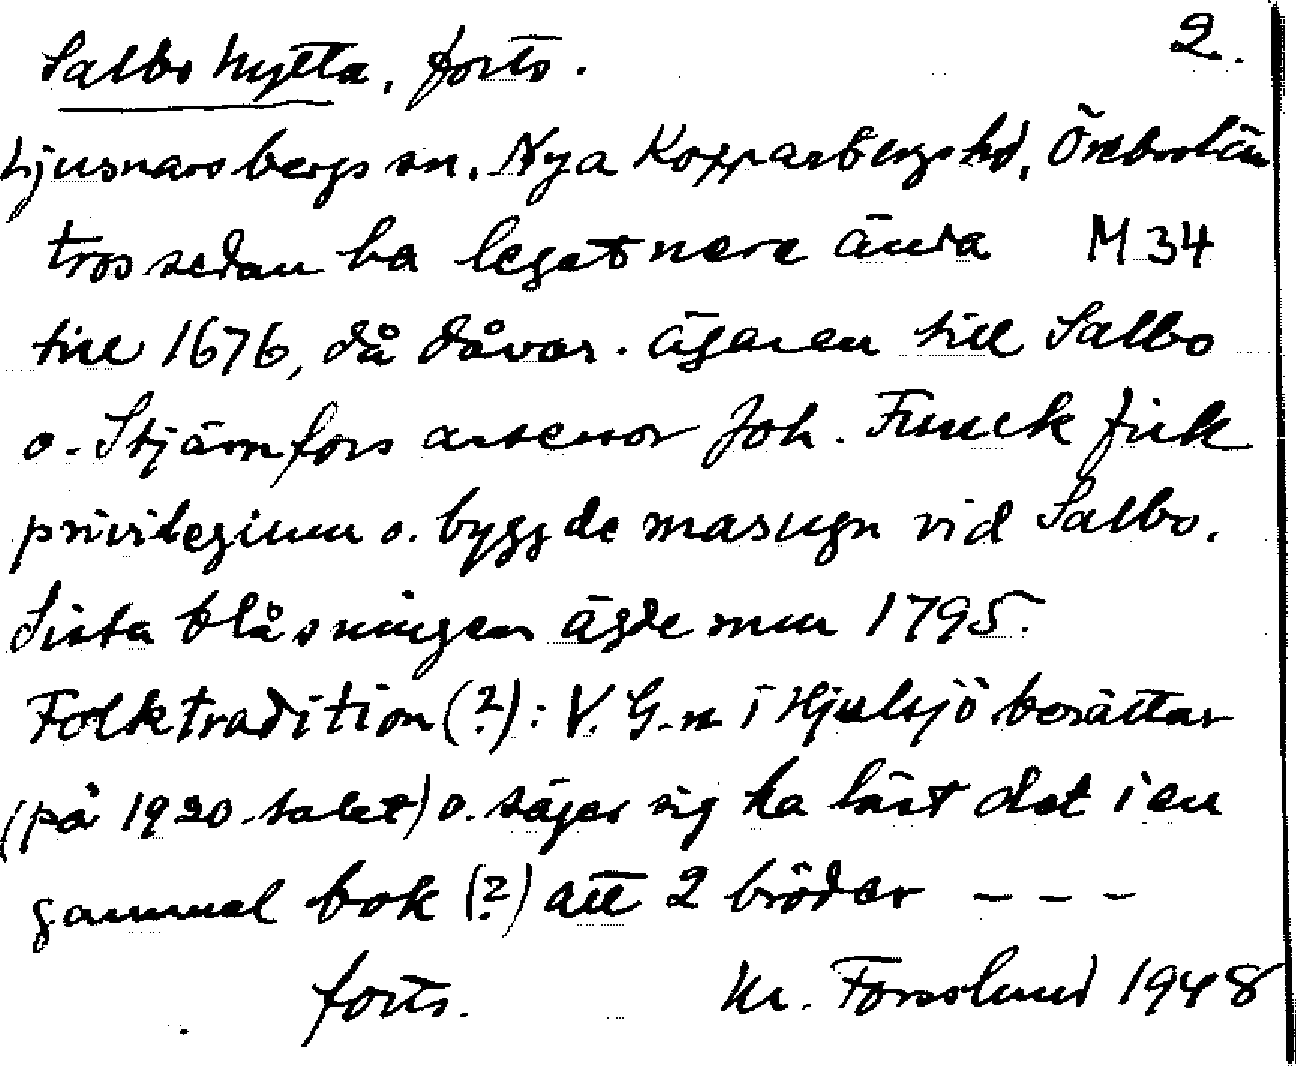 Salbo hytta, forts. 2.
Ljusnarsbergs sn. Nya Kopparbergs hd, Örebro län
tros sedan ha legat nere ända M 34
till 1676, då dåvar. ägaren till Salbo
o. Stjärnfors assessor Joh. Funck fick
privilegium o. byggde masugn vid Salbo.
Sista blåsningen ägde rum 1795.
Folktradition (?): V. G-n i Hjulsjö berättar
(på 1920-talet) o. säger sig ha läst det i en
gammal bok (?) att 2 bröder - - -
forts. Kr. Forsslund 1948